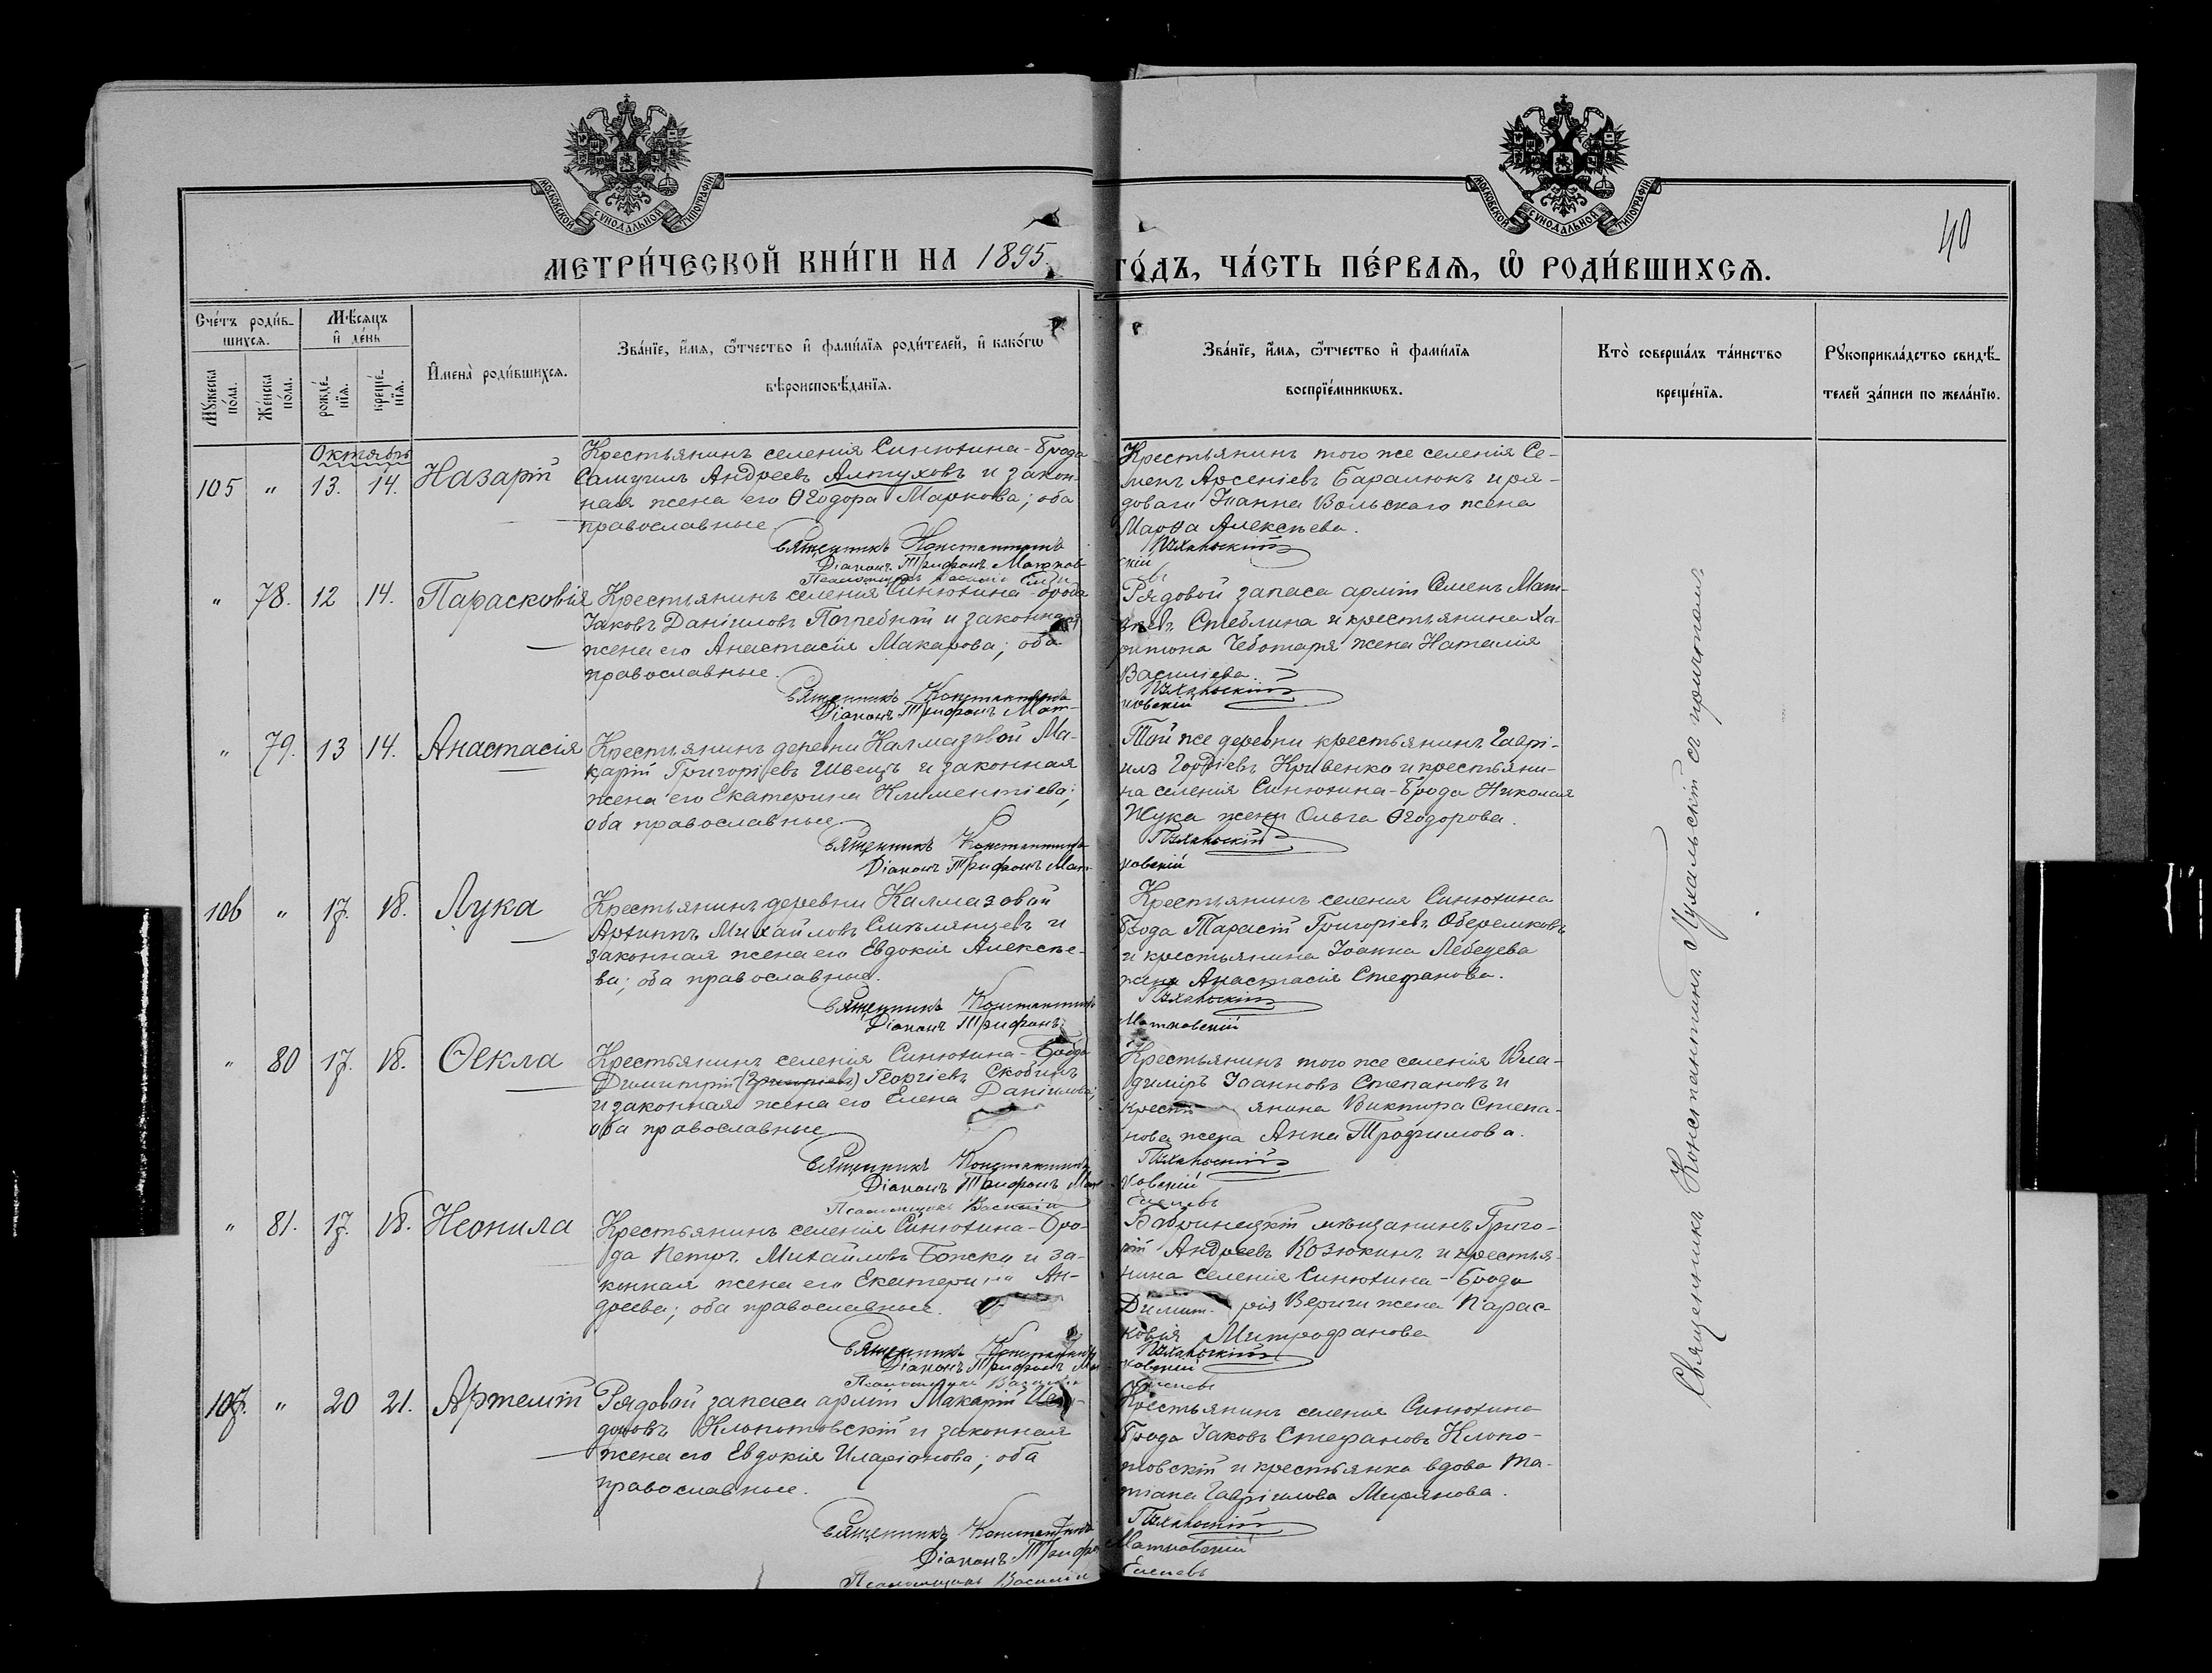 МОСКОВСКОЙ СѴНОДАЛЬНОЙ ТИПОГРАФІИ
МОСКОВСКОЙ СѴНОДАЛЬНОЙ ТИПОГРАФІИ
40
МЕТРИ́ЧЕСКОЙ КНИ́ГИ НА 1895 ГО́ДЪ, ЧА́СТЬ ПЕ́РВАѦ, Ѡ҆ РОДИ́ВШИХСѦ.
Сче́тъ роди́в-
шихсѧ.
Мꙋ́жеска по́ла.
Же́нска по́ла.
Мѣ́сѧцъ и҆ де́нь
рожде́-нїѧ.
креще́-нїѧ.
И҆мена̀ роди́вшихсѧ.
Зва́нїе, и҆́мѧ, ѻ҆́тчество и҆ фами́лїѧ роди́телей, и҆ како́гѡ
вѣроисповѣ́данїѧ.
Зва́нїе, и҆́мѧ, ѻ҆́тчество и҆ фами́лїѧ
воспрїе́мникѡвъ.
Кто̀ соверша́лъ та́инство
креще́нїѧ.
Рꙋкоприкла́дство свидѣ́-
телей за́писи по жела́нїю.
Октябрь
105 " 13. 14. Назарій
Крестьянинъ селенія Синюхина-Брода
Самуилъ Андреевъ Алтуховъ и закон-
ная жена его Ѳеодора Маркова; оба
православные.
Священникъ Константинъ
Діаконъ Трифонъ Матков-
Крестьянинъ того же селенія Се-
менъ Арсеніевъ Баранюкъ и ря-
доваго Іоанна Вольскаго жена
Марѳа Алексѣева.
Пухальскій
скій
" 78. 12 14. Парасковія
Крестьянинъ селенія Синюхина-Брода
Іаковъ Даніиловъ Погребной и законная
жена его Анастасія Макарова; оба
православные.
Священникъ Константинъ
Діаконъ Трифонъ Мат-
Рядовой запаса арміи Семенъ Мат-
вѣевъ Стеблина и крестьянина Ха-
ритона Чеботаря жена Наталія
Василіева.
Пухальскій
ковскій
" 79. 13 14. Анастасія
Крестьянинъ деревни Калмазовой Ма-
карій Григоріевъ Швецъ и законная
жена его Екатерина Климентіева;
оба православные.
Священникъ Константинъ
Діаконъ Трифонъ Мат-
Той же деревни крестьянинъ Гаврі-
илъ Гордіевъ Кривенко и крестьяни-
на селенія Синюхина-Брода Николая
Жука жена Ольга Ѳеодорова.
Пухальскій
ковскій
106 " 17. 18. Лука
Крестьянинъ деревни Калмазовой
Архиппъ Михайловъ Смѣлянцевъ и
законная жена его Евдокія Алексѣе-
ва; оба православные.
Священникъ Константинъ
Діаконъ Трифонъ
Крестьянинъ селенія Синюхина
Брода Тарасій Григоріевъ Оберемковъ
и крестьянина Іоанна Лебедева
жена Анастасія Стефанова.
Пухальскій
Матковскій
" 80 17. 18. Ѳекла
Крестьянинъ селенія Синюхина-Брода
Димитрій (Григоріевъ) Георгіевъ Скобинъ
и законная жена его Елена Даніилова;
оба православные
Священникъ Константинъ
Діаконъ Трифонъ Мат-
Псаломщикъ Василій
Крестьянинъ того же селенія Вла-
диміръ Іоанновъ Степановъ и
крестьянина Виктора Степа-
нова жена Анна Трофимова.
Пухальскій
ковскій
" 81. 17. 18. Неонила
Крестьянинъ селенія Синюхина-Бро-
да Петръ Михайловъ и за-
конная жена его Екатерина Ан-
дреева; оба православные.
Священникъ Константинъ
Діаконъ Трифонъ Мат-
Псаломщикъ Василій
Бобринецкій мѣщанинъ Григо-
рій Андреевъ Козюкинъ и крестья-
нина селенія Синюхина-Брода
Димитрія Вериги жена Парас-
ковія Митрофанова
Пухальскій
ковскій
107. " 20 21. Артемій
Рядовой запаса арміи Макарій
Клопотовскій и законная
жена его Евдокія Иларіонова; оба
православные.
Священникъ Константинъ
Діаконъ Трифонъ
Псаломщикъ Василій
Крестьянинъ селенія Синюхина
Брода Іаковъ Стефановъ Клопо-
товскій и крестьянка вдова Та-
тіана Гавріилова Мирянова.
Пухальскій
Матковскій
Священникъ Константинъ Пухальскій съ причтомъ